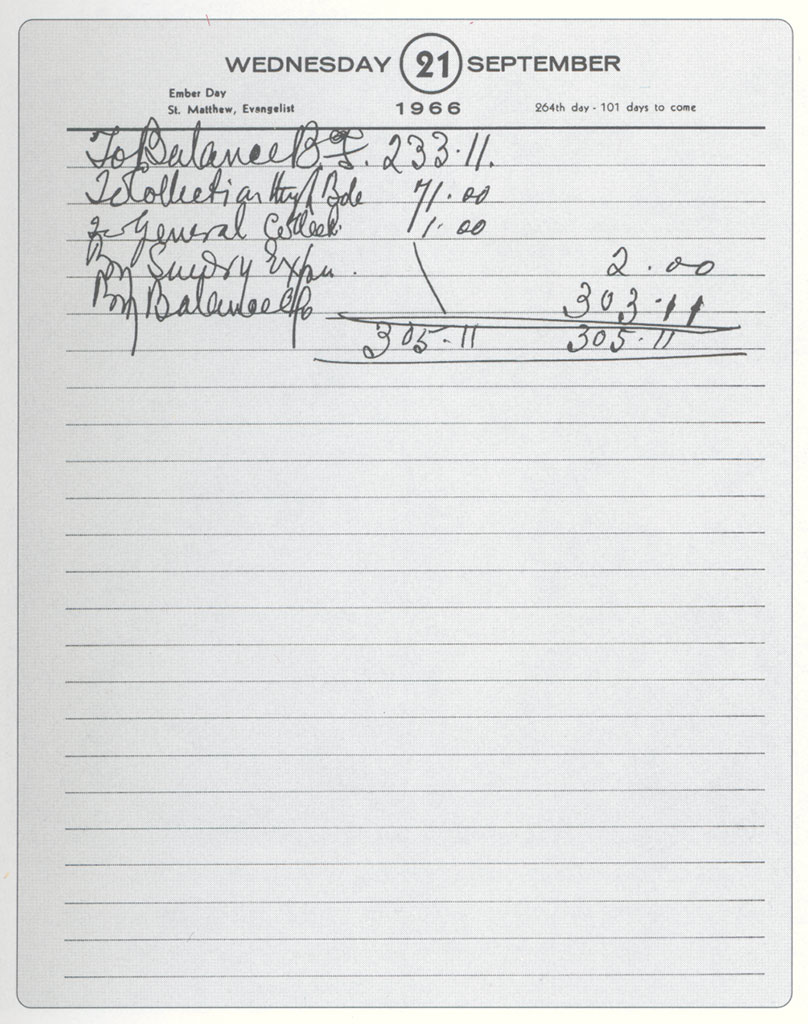 WEDNESDAY 21 SEPTEMBER
Ember Day
St. Matthew, Evangelist
1966
264th day - 101 days to come
To Balance B. F. 233.11.
To Collection 71.00
To General Collect. 1.00
By Sundry Expen. 2.00
By Balance c/o 303.11
305.11 305.11